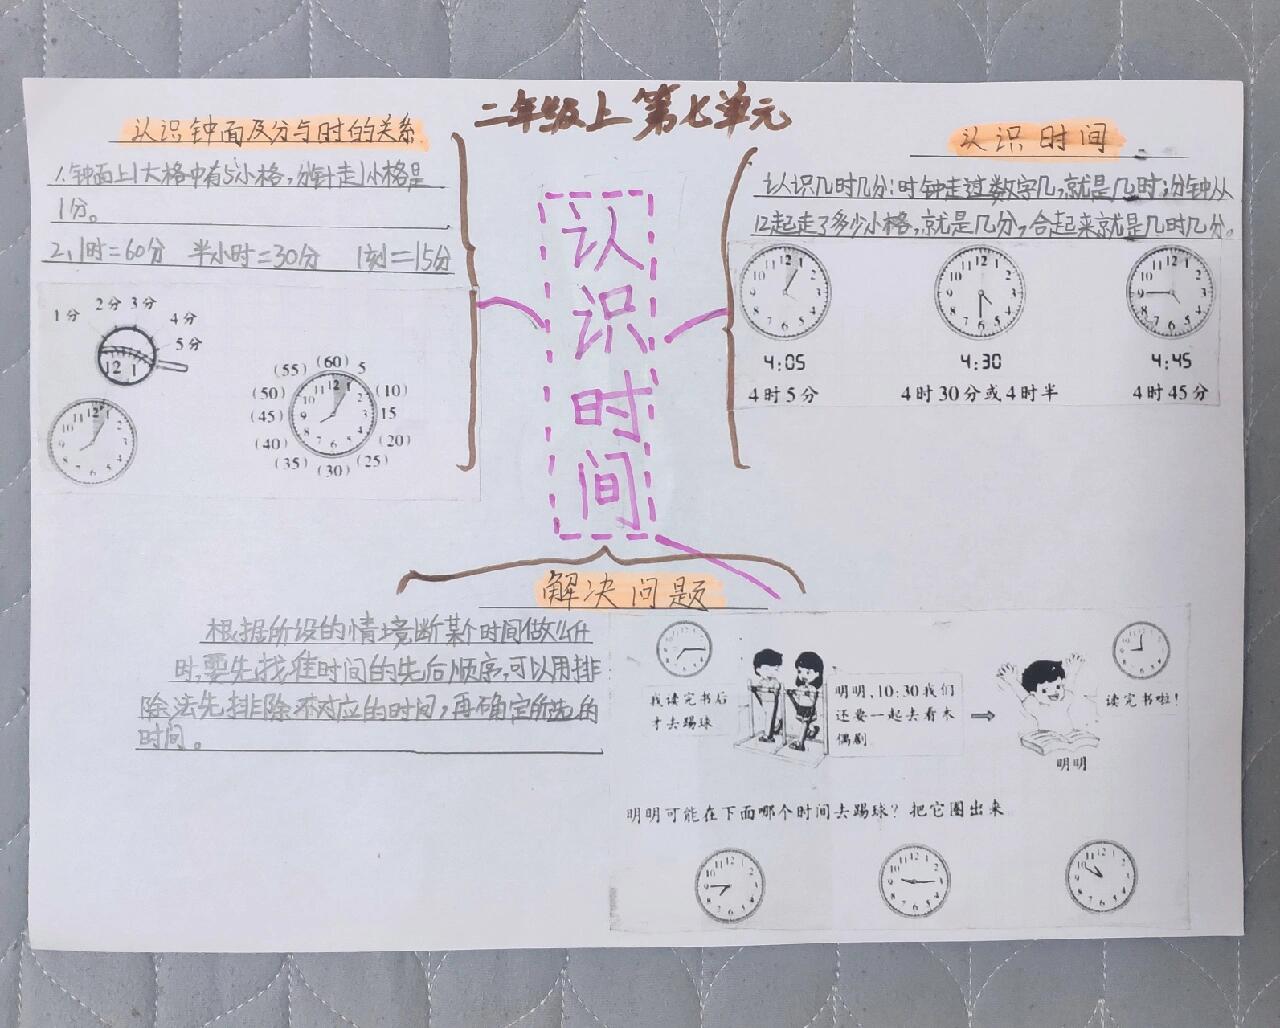 二年级上 第七单元
认识钟面及分与时的关系
1.钟面上1大格中有5小格,分针走1小格是
1分。
2、1时=60分 半小时=30分 1刻=15分
1分 2分 3分 4分 5分
12 1
(60) 5 (10) 15 (20) (25) (30) (35) (40) (45) (50) (55)
认识时间
认识时间
认识几时几分:时钟走过数字几,就是几时;分钟从
12起走了多少小格,就是几分,合起来就是几时几分。
4:05 4:30 4:45
4时5分 4时30分或4时半 4时45分
解决问题
根据所设的情境断某个时间做什
时,要先找准时间的先后顺序,可以用排
除法先排除不对应的时间,再确定所选的
时间。
我读完书后
才去踢球
明明,10:30我们
还要一起去看木
偶剧
读完书啦!
明明
明明可能在下面哪个时间去踢球?把它圈出来